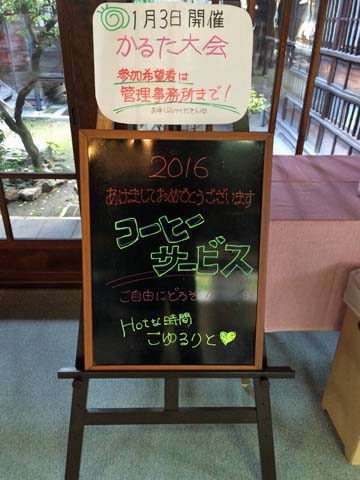 1月3日開催
かるた大会
参加希望着は
管理事務所まで!
お申し込みくださいね
2016
あけましておめでとうございます
コーヒー
サービス
ご自由にどうぞ!
Hotな時間
ごゆるりと♥